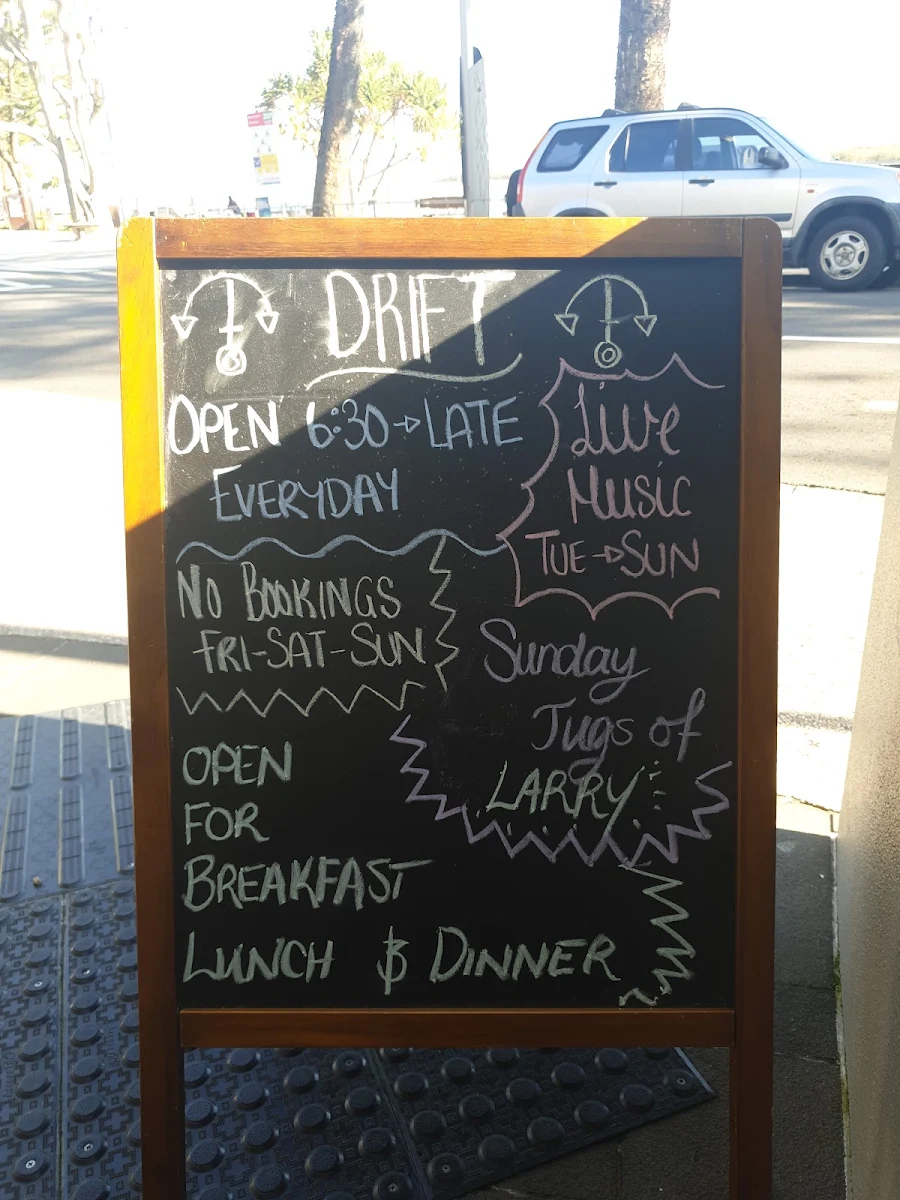 DRIFT
OPEN 6:30→LATE
EVERYDAY
Live
Music
TUE→SUN
NO BOOKINGS
FRI-SAT-SUN
Sunday
Jugs of
LARRY
OPEN
FOR
BREAKFAST
LUNCH & DINNER